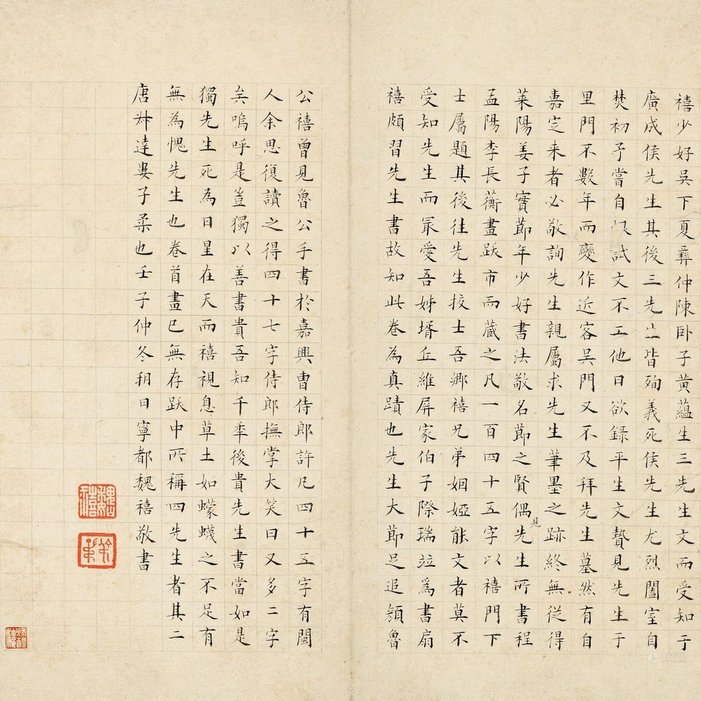 禧少好吳下夏彝仲陳卧子黃蘊生三先生文而受知于
廣成侯先生其後三先生皆殉義死侯先生尤烈闔室自
焚初予嘗自以試文不工他日欲錄平生文贄見先生于
里門不數年而變作近客吳門又不及拜先生墓然有自
嘉定来者必敬詢先生親屬求先生筆墨之跡終無從得
萊陽姜子實節年少好書法敬名節之賢偶見先生所書程
孟陽李長蘅畫跋市而藏之凡一百四十五字以禧門下
士屬題其後往先生挍士吾鄉禧兄弟姻婭能文者莫不
受知先生而冣受吾姊壻丘維屏家伯子際瑞竝為書扇
禧頗習先生書故知此卷為真蹟也先生大節足追頴魯
公禧曾見魯公手書於嘉興曹侍郎許凡四十五字有闕
人余思復讀之得四十七字侍郎撫掌大笑曰又多二字
矣嗚呼是豈獨以善書貴吾知千秊後貴先生書當如是
獨先生死為日星在天而禧視息草土如蠓蠛之不足有
無為愧先生也卷首畫已無存跋中所稱四先生者其二
唐叔達婁子柔也壬子仲冬朔日寧都魏禧敬書